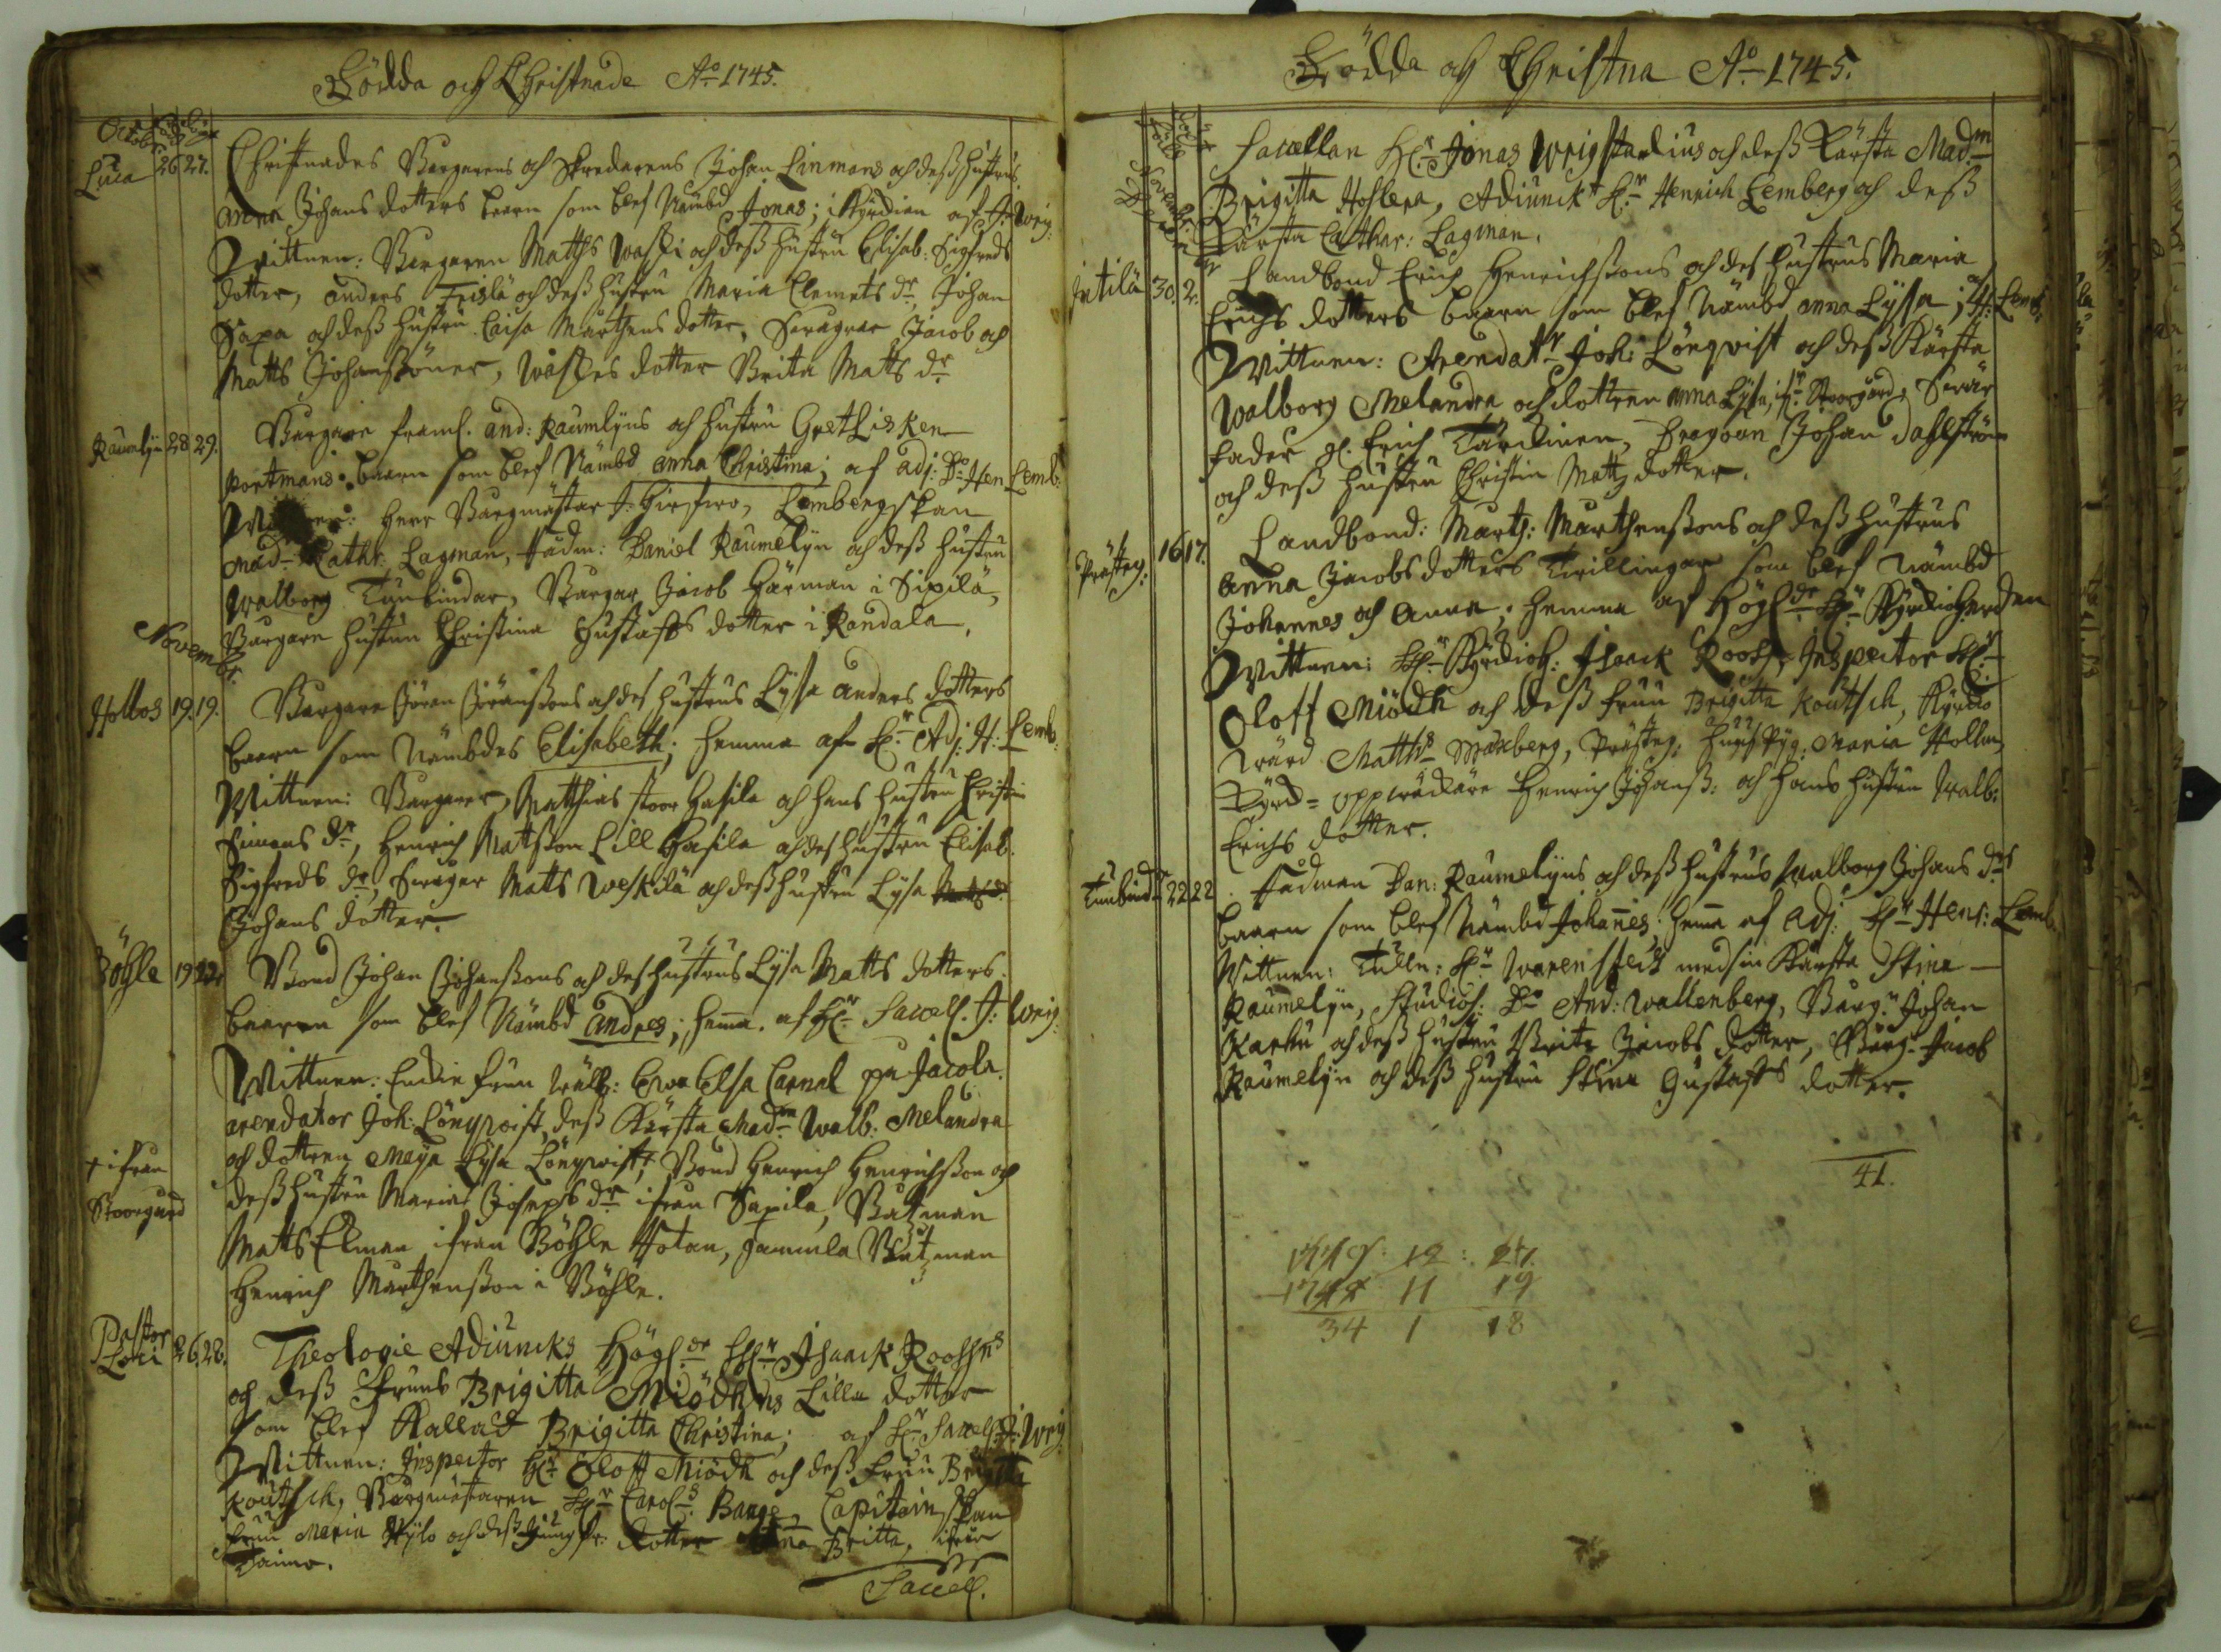 Födda och Christnade Ao 1745.
Octob: Född Christ
Luca 26 27. Christnades Borgarens och Skredarens Johan Linmans och dess hustrus
Anna Johans dotters barn som blef Nämbd Jonas; i Kyrckian af J: Wrig:
Wittnen: Borgaren Matths Waski och dess hustru Elisab: Sigfreds
dotter, Anders Frislä och dess hustru Maria Clemets dr Johan
Sapa och dess hustru Caisa Marthens dotter, Jacob och
Matts Johanssöner, dotter Brita Matts dr
Raumlyn 28 29. Borgare framl. And: Raumlyns och hustru GretLisken
Portmans barn som blef Nämbd Anna Christina; af Adj: Do Hen Lemb:
Herr Borgmästar J: Lembergskan
Mad. Cathr: Lagman, Fädm: Daniel Raumelyn och dess hustru
Walborg Tunbindar, Borgar Jacob Härman i Sipilä,
Borgare hustru Christina Gustafs dotter i Randala.
Novembr.
Hollos 19. 19. Borgare Jöran Jöranssons och des hustrus Lysa Anders dotters
barn som Nämbdes Elisabeth; hemma af Hr Adj: H. Lemb:
Wittnen: Borgaren Matthias stoor Hasila och hans hustru Christin
Simons dr, Henrich Mattsson Lill Hasila och des hustru Elisab.
Sigfreds dr, Matts Weskilä och dess hustru Lysa
Johans dotter.
Böhle 19 22 Bond Johan Johanssons och des hustrus Lysa Matts dotters
barn som blef Nämbd Andres; hema. af Hr Sacell. J: Wrig:
Wittnen: frun Wälb: Ewa Elsa Carnal på Jacola.
arendator Joh: Lönqwist, dess Kärsta Madm Walb: Melandra
och dottren Meya Lysa Lönqwist, + Bond Henrich Henrichsson och
+ ifrån
Stoorgård
dess hustru Maria Josephs dr ifrån Sapila, Båtzman
Matts Elman ifrån Böhle Gammla Båtzman
Henrich Marthensson i Böhle.
Pastor
Loci 26. 28. Theologie Adiuncks Högl. dr Hr Isaack Rooss
och dess fruus Brigitta Miödhs Lilla dotter
som blef Kallad Brigitta Christina; af Hr Sacell: J: Wrig:
Wittnen: Inspector Hr Oloff Miödh och dess Fruu Brigitta
Koutsch, Borgmästaren Hr Carols Bange, Capitainskan
Fruu Maria och dess Jungfr. dotter Britta, ifrån
Sacell.
Födda och Christna Ao 1745.
Född Döpt
Novembr:
Sacellan Hr Jonas Wrigstadius och dess Kärsta Madm
Brigitta Hoslera, Adiunckt Hr Henrich Lemberg och dess
Kärsta Cathar: Lagman.
Intilä 30. 2. Landbond Erich Henrichssons och des hustrus Maria
Erichs dotters barn som blef Nämbd Anna Lysa; H: Lemb:
Wittnen: Arendatr Joh: Lönqvist och dess Kärsta
Walborg Melandra och dottren Anna Lysa, ifr. Stoorgård,
fader gl. Erich Kärckinen, Dragoun Johan Dahlström
och dess hustru Christin Mattz dotter.
Prästeg: 16 17. Landbond: Marth: Marthenssons och dess hustrus
Anna Jacobs dotters Twillingar som blef Nämbd
Johannes och Anna; hemma af Högl. dr Hr Kyrckioherden
Wittnen: Hr Kyrckioh: Isaack Rooss, Inspector Hr
Oloff Miödh och dess Fruu Brigitta Koutsch, Kyrckio
wärd Matths Maxberg, Prästeg: Maria Hollm
Kyrck= Henrich Johanss: och hans hustru Walb:
Erichs dotter.
Tunbindr 22 22 Fädman Dan: Raumelyns och dess hustrus Walborg Johans drs
barn som blef Nämbd Johanes; hema af Adj: Hr Henr: Lemb.
Wittnen: Tulln: Hr med sin Kärsta Stina
Raumelyn, Studios: Do And: Wallenberg, Borg: Johan
Karku och dess hustru Brita Jacobs dotter, Borg: Jacob
Raumelyn och dess hustru Stina Gustafs dotter.
41.
12: 27.
11 19
34 1 18